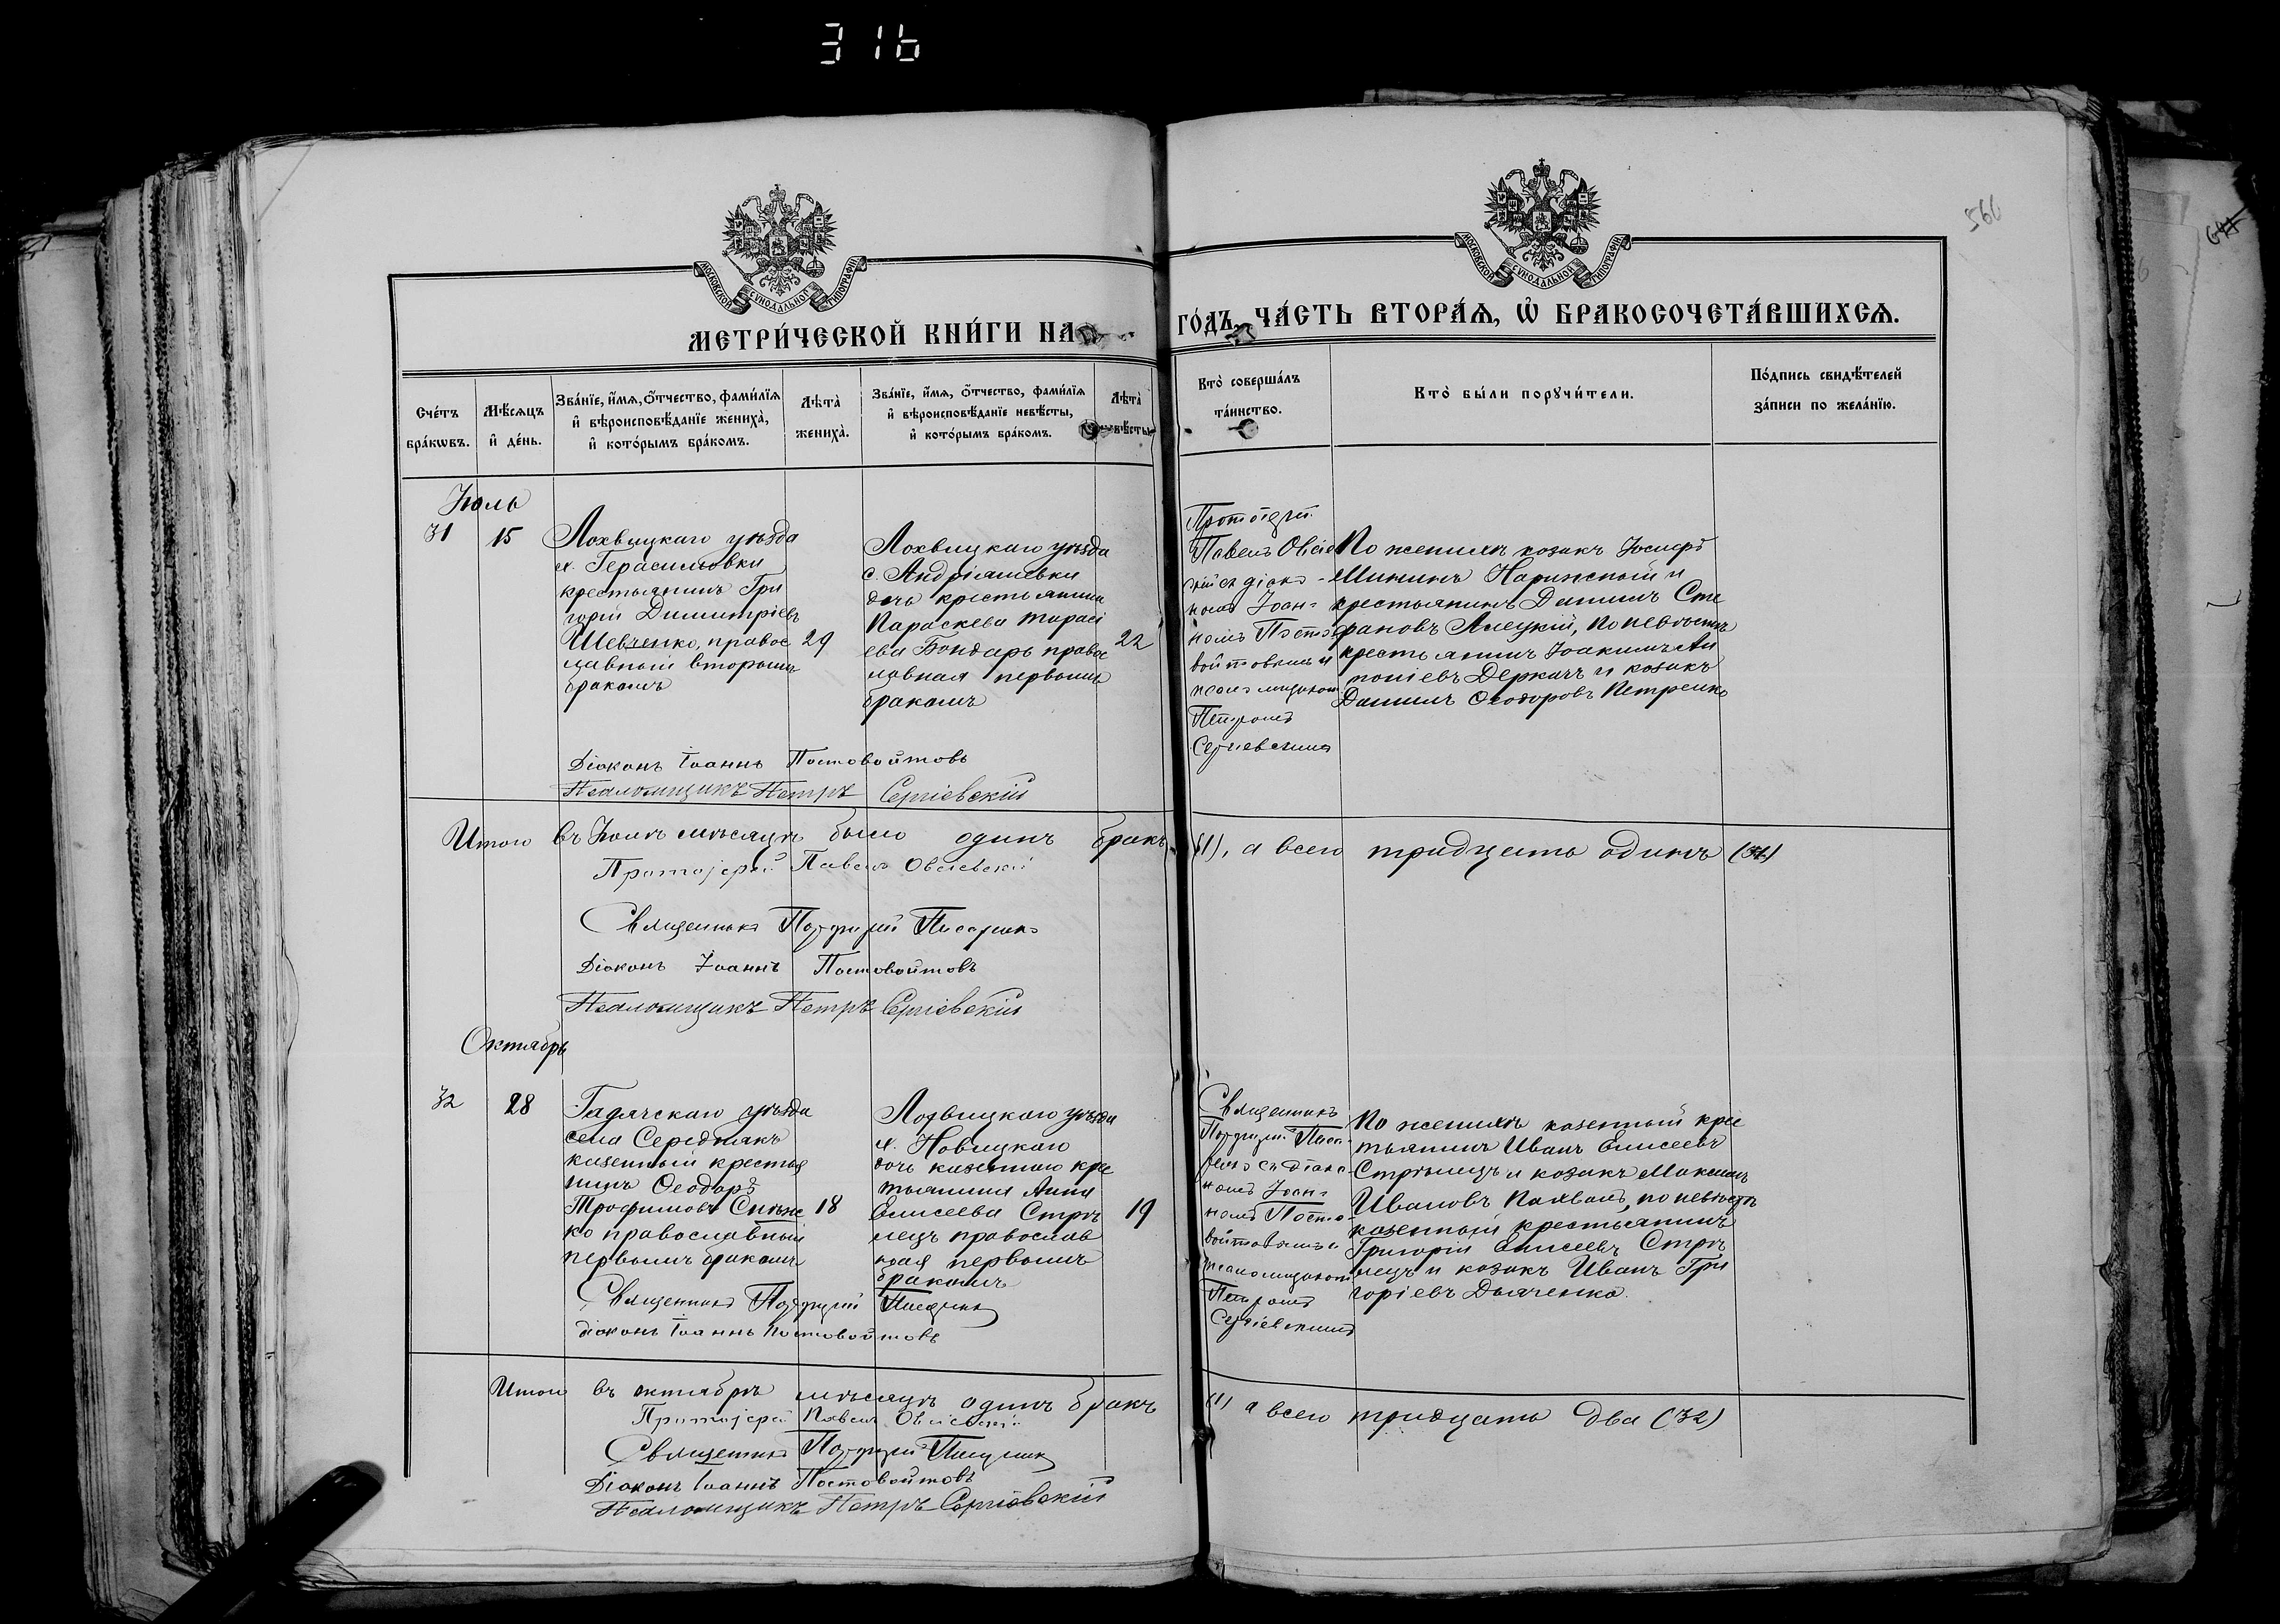 316
566
МОСКОВСКОЙ СѴНОДАЛЬНОЙ ТИПОГРАФІИ
МОСКОВСКОЙ СѴНОДАЛЬНОЙ ТИПОГРАФІИ
МЕТРИ́ЧЕСКОЙ КНИ́ГИ НА
ГО́ДЪ, ЧА́СТЬ ВТОРА́Ѧ, Ѽ БРАКОСОЧЕТА́ВШИХСѦ.
Сче́тъ
бра́кѡвъ.
Мѣ́сѧцъ
и҆ де́нь.
Зва́нїе, и҆́мѧ, ѻ҆́тчество, фами́лїѧ
и҆ вѣроисповѣ́данїе жениха̀,
и҆ кото́рымъ бра́комъ.
Лѣ̀та̀
жениха̀.
Зва́нїе, и҆́мѧ, ѻ҆́тчество, фами́лїѧ
и҆ вѣроисповѣ́данїе невѣ́сты,
и҆ кото́рымъ бра́комъ.
Лѣ̀та̀
невѣ́сты
Кто̀ соверша́лъ
та́инство.
Кто̀ бы́ли порꙋчи́тели.
По́дпись свидѣ́телей
за́писи по жела́нїю.
Іюль
31
15
Лохвицкаго уѣзда
х. Герасимовки
крестьянинъ Гри
горій Димитріевъ
Шевченко, правос
лавный вторымъ
бракомъ
29
Лохвицкаго уѣзда
с. Андріяшевки
дочь крестьянина
Параскева Тарасі
ева Бондарь правос
лавная первымъ
бракомъ
22
Протоіерей
Павелъ Овсіев
скій съ діако-
номъ Іоан-
номъ Посто-
войтовымъ и
псаломщикомъ
Петромъ
Сергіевскимъ
По женихѣ козакъ Іосифъ
Нарижный и
крестьянинъ Даніилъ Сте
фановъ Ялецкій, по невѣстѣ
крестьянинъ Іоакимъ Ан
тоніевъ Деркачъ и козакъ
Даніилъ Ѳеодоровъ Петренко
Діаконъ Іоаннъ Постовойтовъ
Псаломщикъ Петръ Сергіевскій
Итого въ Іюлѣ мѣсяцѣ было одинъ бракъ (1), а всего тридцать одинъ (31)
Протоіерей Павелъ Овсіевскій
Священникъ Порфирій Писаренко
Діаконъ Іоаннъ Постовойтовъ
Псаломщикъ Петръ Сергіевскій
Октябрь
32
28
Гадячскаго уѣзда
села Середнякъ
казенный крестья
нинъ Ѳеодоръ
Трофимовъ
ко православный
первымъ бракомъ
18
Лохвицкаго уѣзда
х. Новицкаго
дочь казеннаго крес
тьянина Анна
Елисеева Стрѣ
лецъ православ
ная первымъ
бракомъ
19
Священникъ
Порфирій Писа-
ренко съ діако-
номъ Іоан-
номъ Посто-
войтовымъ и
псаломщикомъ
Петромъ
Сергіевскимъ
По женихѣ казенный крес
тьянинъ Иванъ Елисеевъ
Стрѣлецъ и козакъ Максимъ
Ивановъ по невѣстѣ
казенный крестьянинъ
Григорій Елисеевъ Стрѣ
лецъ и козакъ Иванъ Гри
горіевъ Дьяченко.
Священникъ Порфирій Писаренко
діаконъ Іоаннъ Постовойтовъ
Итого въ октябрѣ мѣсяцѣ одинъ бракъ (1) а всего тридцать два (32)
Протоіерей Павелъ Овсіевскій
Священникъ Порфирій Писаренко
Діаконъ Іоаннъ Постовойтовъ
Псаломщикъ Петръ Сергіевскій